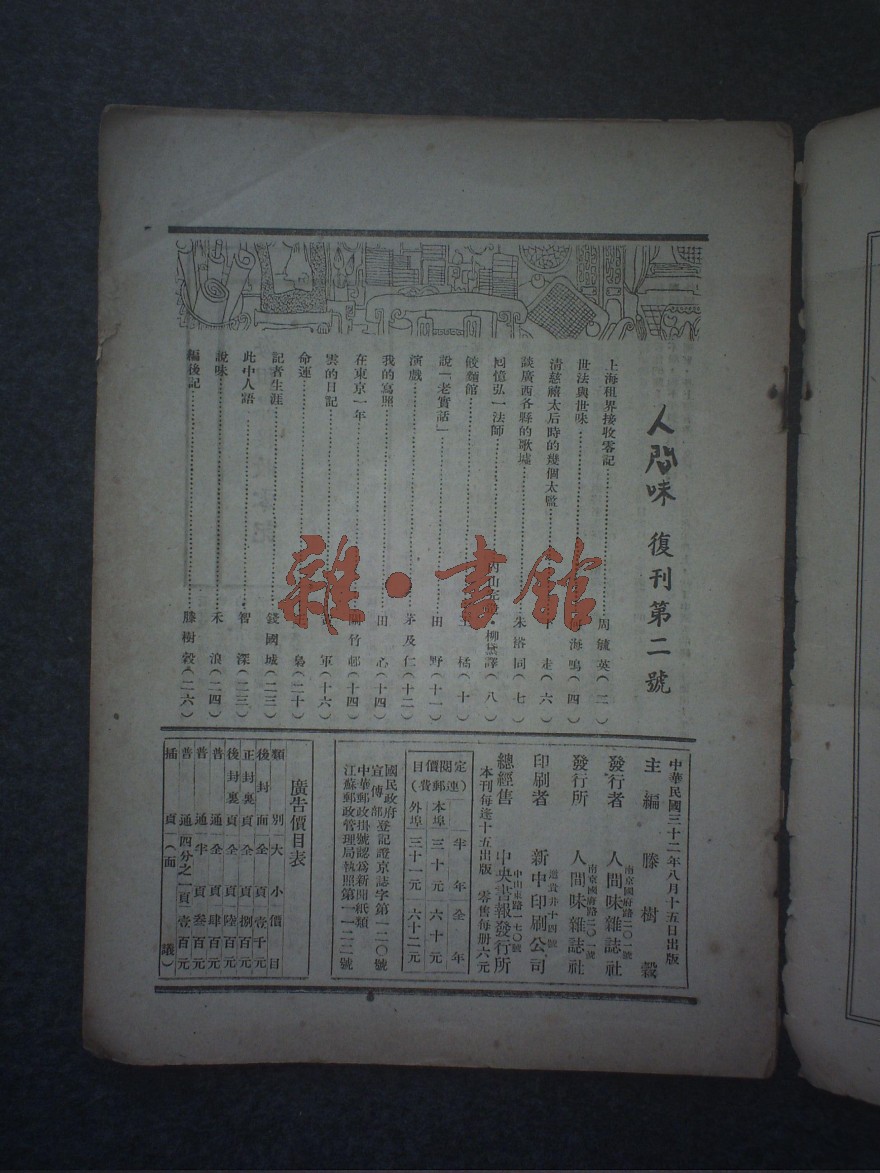 人間味 復刊第二號
上海租界接收零記 周毓英(二)
世法與世味 海鳴(四)
清慈禧太后時的幾個太監 走(六)
談廣西各縣的歌墟 朱搭同(七)
囘憶弘一法師 內山 柳黛譯(八)
餃麵館 橘(十)
說「老實話」 田野(十一)
演戲 茅及仁(十二)
我的寫照 田心(十四)
在東京一年 竹邨(十四)
雲的日記 軍(十六)
命運 梟(二十)
記者生涯 錢國城(二三)
此中人語 智深(二三)
說味 禾浪(二四)
編後記 滕樹穀(二六)
中華民國三十二年八月十五日出版
主編 滕樹穀
發行者 人間味雜誌社 南京國府路二〇一號
發行所 人間味雜誌社 南京國府路二〇一號
印刷者 新中印刷公司 十四號
總經售 中央書報發行所 中山東路一七〇號
本刊每逢十五出版 零售每册六元
定閱價目(連郵費)
半年 全年
本埠 三十元 六十元
外埠 三十一元 六十二元
國民政府宣傳部登記證京誌字第一二〇號
中華郵政掛號認為新聞紙類
江蘇郵政管理局執照第一一二二號
廣告價目表
類別 大小 價目
後封面 全頁 壹千元
正封裏頁 全頁 捌百元
後封裏頁 全頁 陸百元
普通 全頁 肆百元
普通 半頁 叁百元
普通 四分之一頁 壹百元
插頁 (面議)
雜·書館